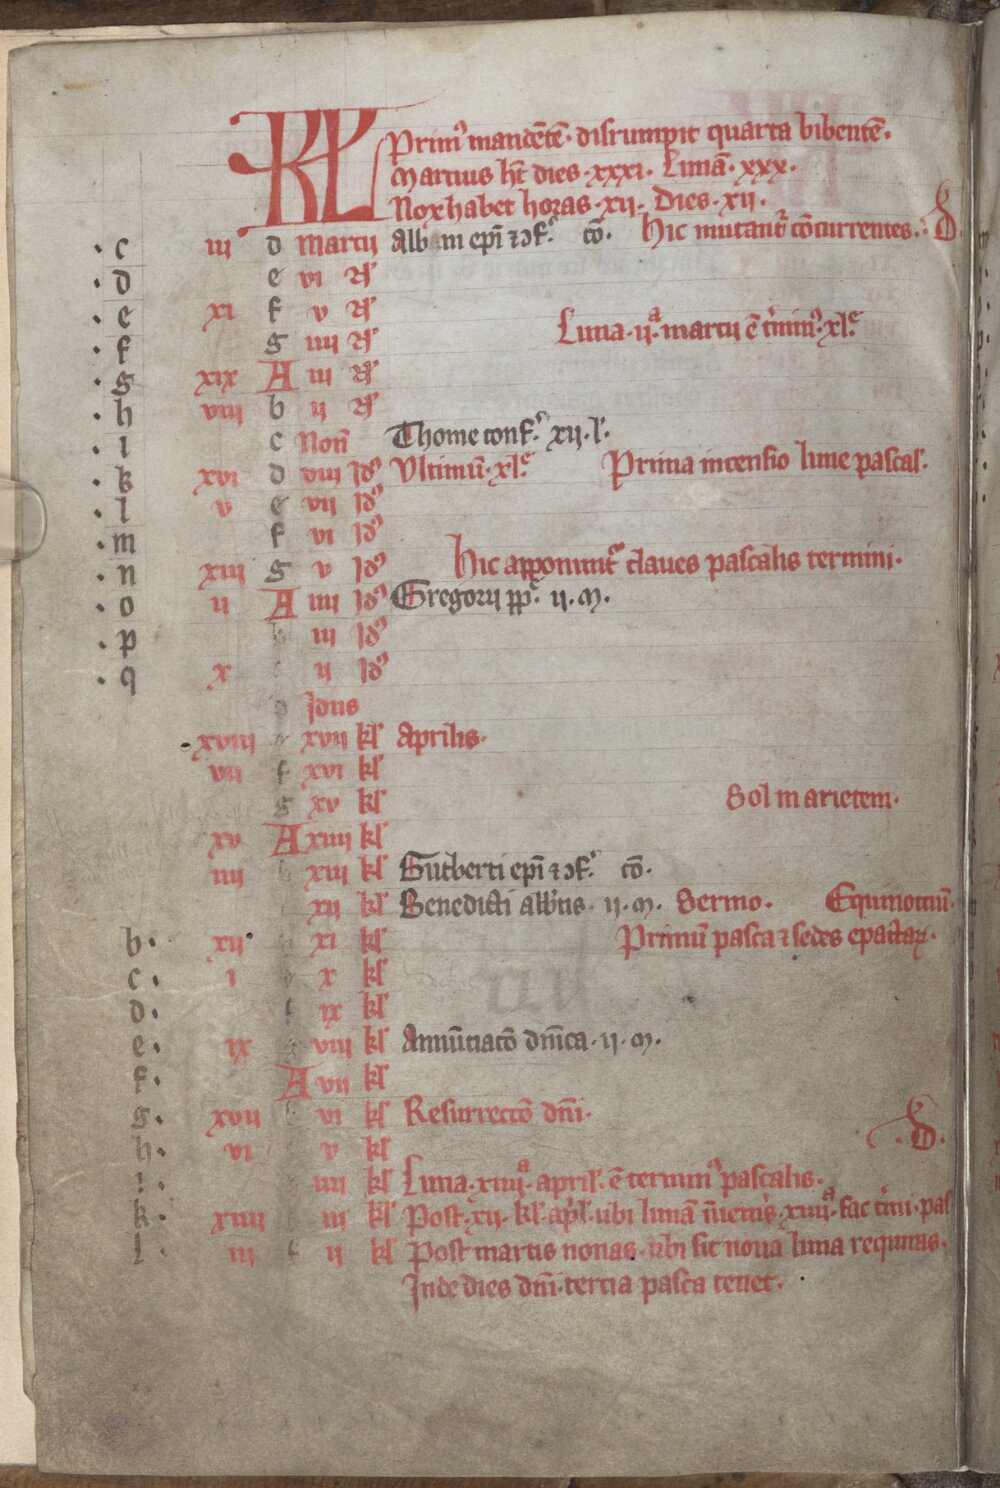 KL Primꝰ mandẽtẽ · disrumpit quarta bibentẽ.
Martius hт̃ dies · xxxi · Lunã · xxx.
Nox habet horas · xii · Dies · xii.
· c iii d Martii Albini ep̃i ⁊ ɔf. cõ. Hic mutant᷑ cõcurrentes. D.
· d e vi N̄
· e xi f v N̄
· f g iiii N̄ Luna · iiª. martii ẽ t̃minꝰ · xlᵉ
· g xix A iii N̄
· h viii b ii N̄
· i c Non̄ Thome conf. xii. l.
· k xvi d viii Idꝰ Ultimũ · xlᵉ Prima incensio lune pascal.
· l v e vii Idꝰ
· m f vi Idꝰ
· n xiii g v Idꝰ Hic apponunt᷑ claues pascalis termini.
· o ii A iiii Idꝰ Gregorii pp̃. ii. m.
· p b iii Idꝰ
· q x ii Idꝰ
d Idus
xviii e xvii kl Aprilis.
vii f xvi kl
g xv kl Sol in arietem.
xv A xiiii kl
iiii xiii kl Gutberti ep̃i ⁊ ɔf. cõ.
xii kl Benedicti abb̃tis · ii. m. Sermo. Equinoctiũ.
b · xii xi kl Primũ pasca ⁊ sedes epactaꝝ.
c · i x kl
d · f ix kl
e · ix viii kl Annũciatõ dñica · ii. m.
f · A vii kl
g · xvii vi kl Resurrectõ dñi.
h · vi v kl D.
i · iiii kl Luna · xiiiiª. april. ẽ terminꝰ pascalis.
k · xiiii iii kl Post · xii. kl. ap̃l. ubi lunã ĩueneris · xiiiiª. fac t̃mi. pas
l · iii f ii kl Post martis nonas · ubi sit noua luna requiras.
Inde dies dñi · tercia pasca tenet.